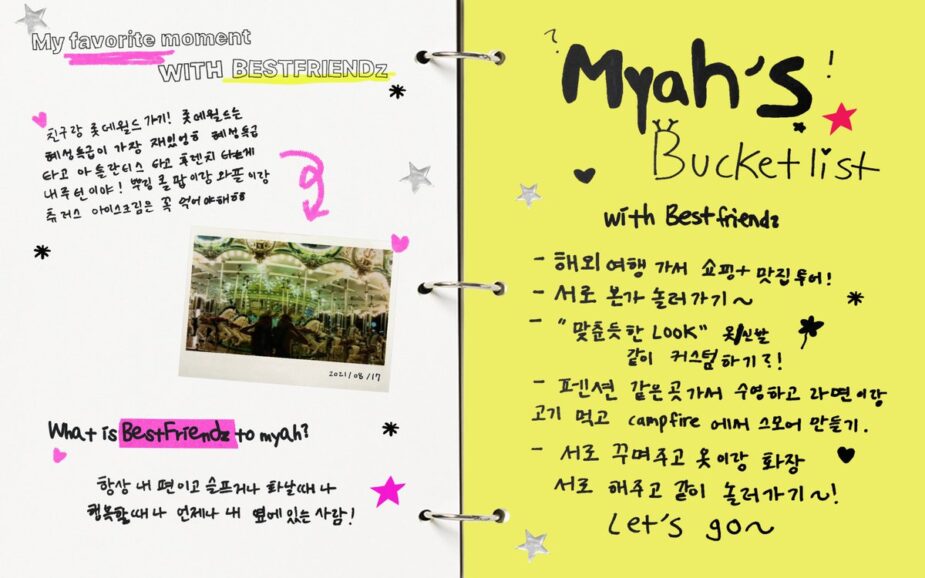 My favorite moment
WITH BESTFRIENDz
친구랑 롯데월드 가기! 롯데월드는
혜성특급이 가장 재밌엉ㅎ 혜성특급
타고 아틀란티스 타고 후렌치 타는게
내 루틴이야! 뿌링콜팝이랑 와플이랑
츄러스 아이스크림은 꼭 먹어야해ㅎㅎ
2021/08/17
What is BestFriendz to myah?
항상 내 편이고 슬프거나 화날때나
행복할때나 언제나 내 옆에 있는 사람!
? Myah's !
Bucketlist
with Bestfriendz
- 해외여행 가서 쇼핑+맛집투어!
- 서로 본가 놀러가기~
- "맞춘듯한 LOOK" 옷/신발
같이 커스텀하기?!
- 펜션 같은곳 가서 수영하고 라면이랑
고기 먹고 campfire 에서 스모어 만들기.
- 서로 꾸며주고 옷이랑 화장
서로 해주고 같이 놀러가기~!
Let's go~